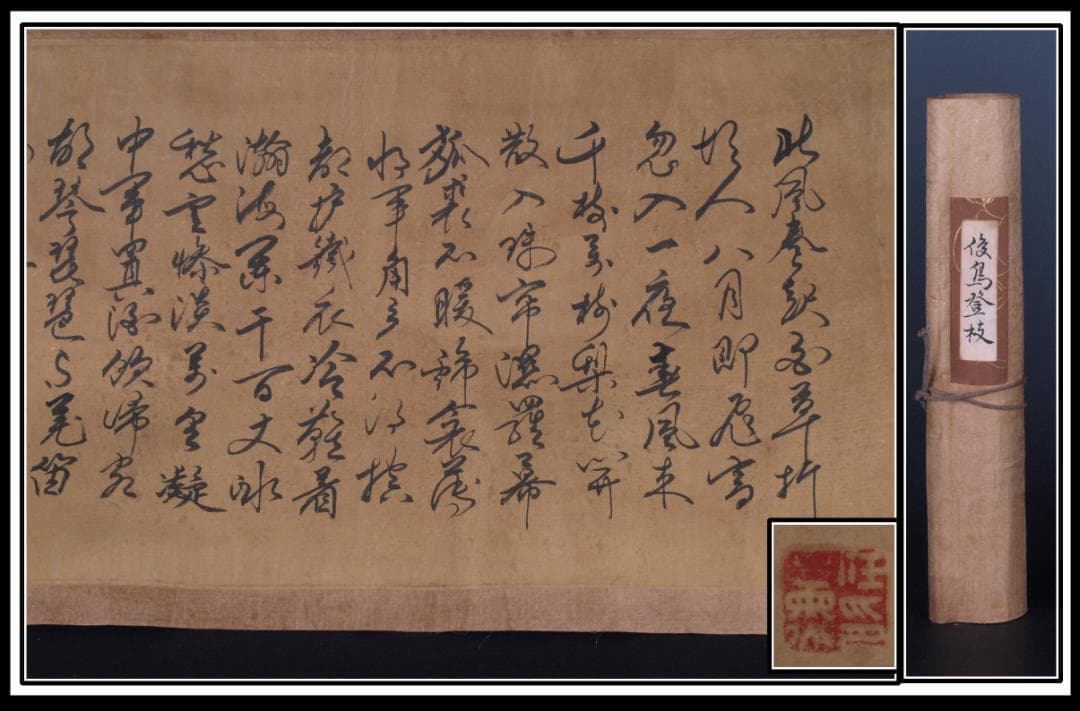 北風卷地白草折
胡天八月即飛雪
忽如一夜春風來
千樹萬樹梨花開
散入珠簾濕羅幕
狐裘不暖錦衾薄
將軍角弓不得控
都护鐵衣冷難着
瀚海闌干百丈冰
愁雲慘淡萬里凝
中軍置酒飲歸客
胡琴琵琶与羌笛
俊鳥登枝